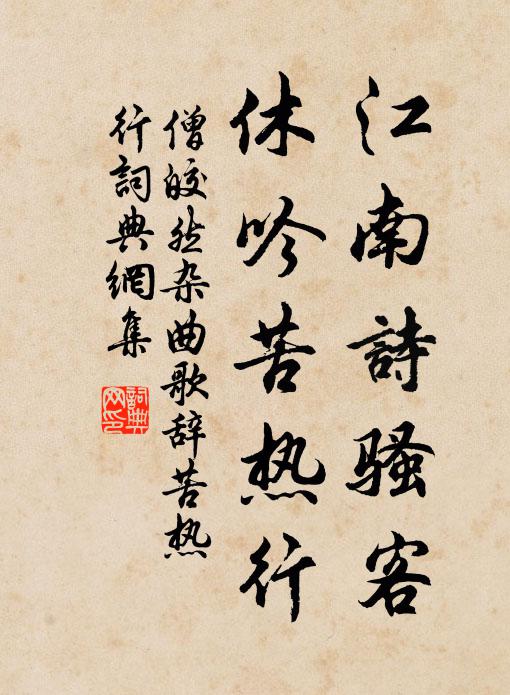 江南詩骚客
休吟苦热行
僧皎然杂曲歌辞苦热
行詞典網集
詞典
网印